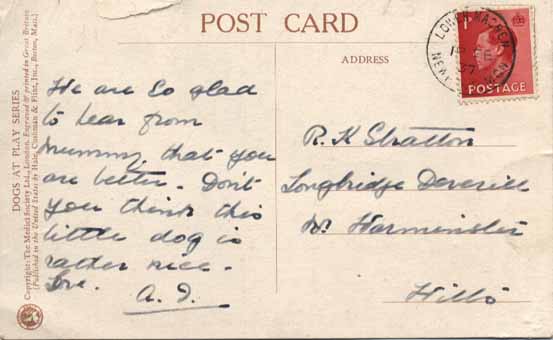 POST CARD
ADDRESS
DOGS AT PLAY SERIES
Copyright: The Medici Society Ltd., London. Engraved & printed in Great Britain
(Published in the United States by Hale, Cushman & Flint, Inc., Boston, Mass.)
We are so glad
to hear from
Mummy that you
are better. Don't
you think this
little dog is
rather nice.
Love. A. I.
R. K Stratton
Longbridge Deverill
Nr Warminster
Wilts
LOWER MACHEN
FE
37
NEW
MON
1D
POSTAGE